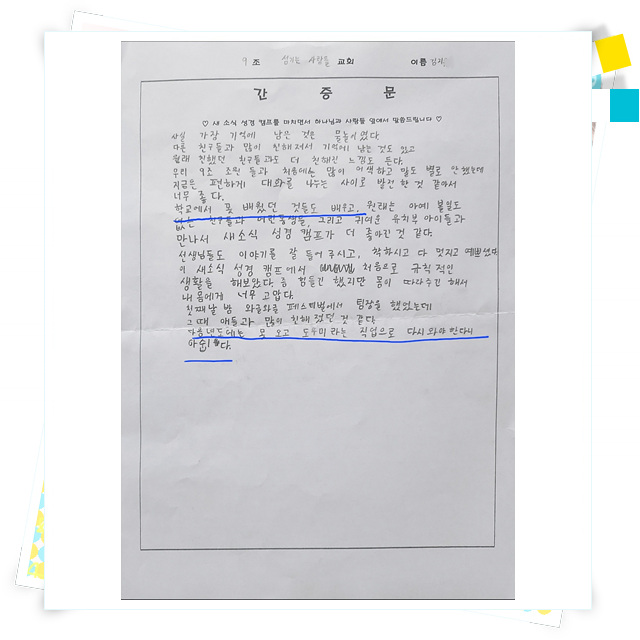 9 조 섬기는 사람들 교회 이름
간 증 문
♡ 새 소식 성경 캠프를 마치면서 하나님과 사람들 앞에서 말씀드립니다 ♡
사실 가장 기억에 남은 것은 물놀이였다.
다른 친구들과 많이 친해져서 기억에 남는 것도 있고
원래 친했던 친구들과도 더 친해진 느낌도 든다.
우리 9조 조원 들과 처음에는 많이 어색하고 말도 별로 안했는데
지금은 편하게 대화를 나누는 사이로 발전한 것 같아서
너무 좋다.
학교에서 못 배웠던 것들도 배우고, 원래는 아예 볼일도
없는 친구들과 어린동생들, 그리고 귀여운 유치부 아이들과
만나서 새소식 성경 캠프가 더 좋아진 것 같다.
선생님들도 이야기를 잘 들어 주시고, 착하시고 다 멋지고 예쁘셨다.
이 새소식 성경 캠프에서 처음으로 규칙적인
생활을 해보았다. 좀 힘들긴 했지만 몸이 따라주긴 해서
내 몸에게 너무 고맙다.
첫째날 밤 와글와글 페스티벌에서 팀장을 했었는데
그때 애들과 많이 친해졌던 것 같다.
다음년도에는 못 오고 도우미라는 직업으로 다시와야 한다니
아쉽다.